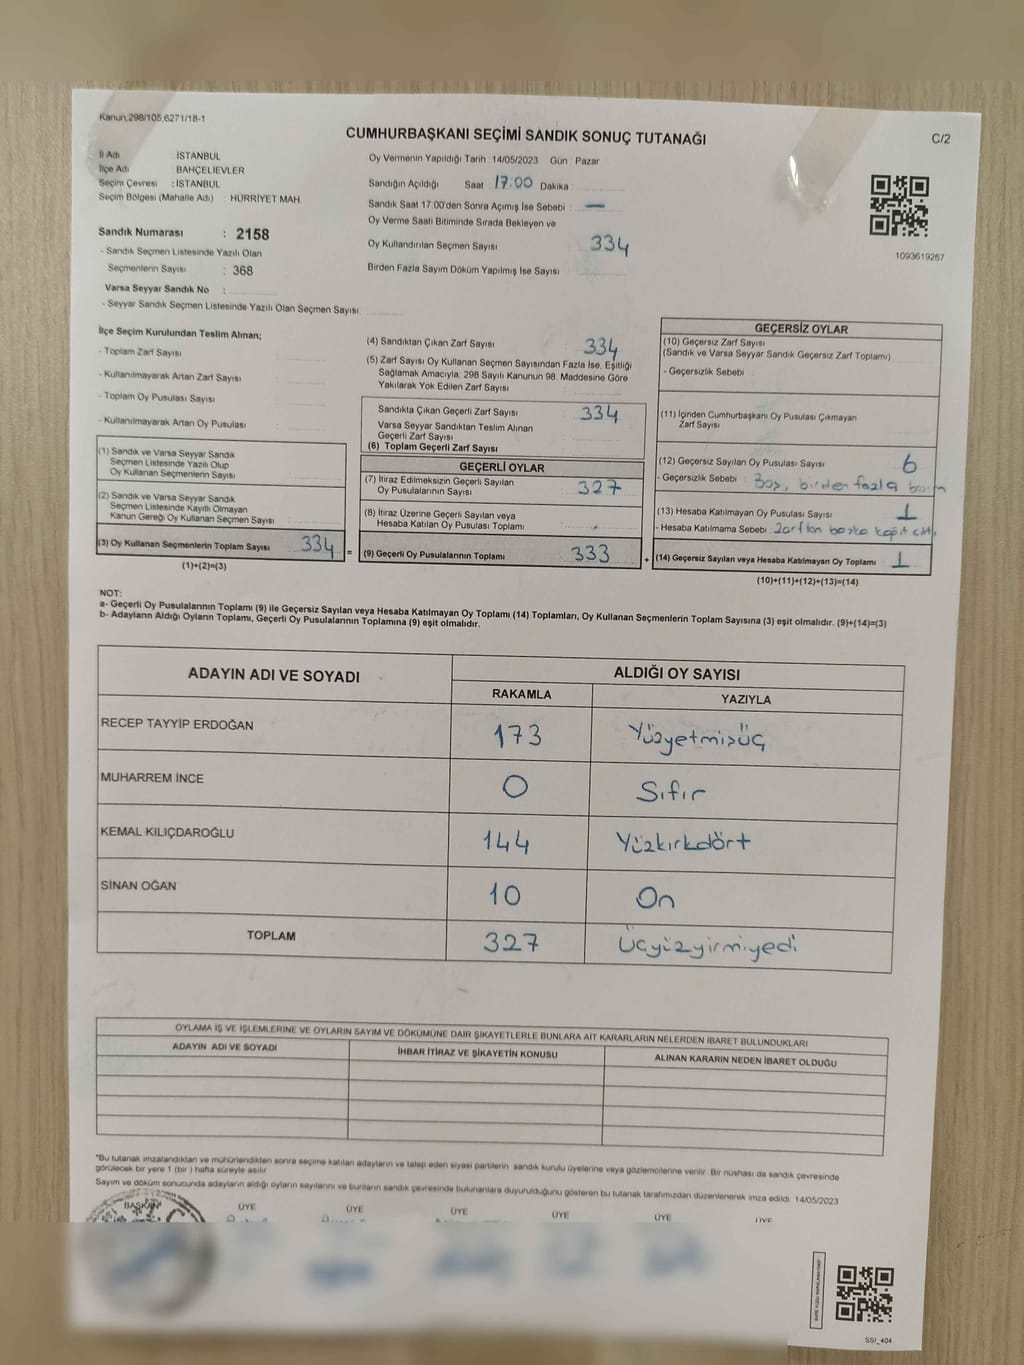 Kanun,298/105,6271/18-1
CUMHURBAŞKANI SEÇİMİ SANDIK SONUÇ TUTANAĞI
C/2
İl Adı : İSTANBUL
İlçe Adı : BAHÇELİEVLER
Seçim Çevresi : İSTANBUL
Seçim Bölgesi (Mahalle Adı) : HÜRRİYET MAH
Sandık Numarası : 2158
- Sandık Seçmen Listesinde Yazılı Olan
Seçmenlerin Sayısı : 368
Varsa Seyyar Sandık No :
- Seyyar Sandık Seçmen Listesinde Yazılı Olan Seçmen Sayısı
Oy Vermenin Yapıldığı Tarih : 14/05/2023 Gün : Pazar
Sandığın Açıldığı Saat : 17:00 Dakika :
Sandık Saat 17:00'den Sonra Açımış İse Sebebi : —
Oy Verme Saati Bitiminde Sırada Bekleyen ve
Oy Kullandırılan Seçmen Sayısı 334
Birden Fazla Sayım Döküm Yapılmış İse Sayısı
1093619267
İlçe Seçim Kurulundan Teslim Alınan;
- Toplam Zarf Sayısı
- Kullanılmayarak Artan Zarf Sayısı
- Toplam Oy Pusulası Sayısı
- Kullanılmayarak Artan Oy Pusulası
(1) Sandık ve Varsa Seyyar Sandık
Seçmen Listesinde Yazılı Olup
Oy Kullanan Seçmenlerin Sayısı
(2) Sandık ve Varsa Seyyar Sandık
Seçmen Listesinde Kayıtlı Olmayan
Kanun Gereği Oy Kullanan Seçmen Sayısı
(3) Oy Kullanan Seçmenlerin Toplam Sayısı 334 =
(1)+(2)=(3)
(4) Sandıktan Çıkan Zarf Sayısı 334
(5) Zarf Sayısı Oy Kullanan Seçmen Sayısından Fazla İse, Eşitliği
Sağlamak Amacıyla; 298 Sayılı Kanunun 98. Maddesine Göre
Yakılarak Yok Edilen Zarf Sayısı
Sandıkta Çıkan Geçerli Zarf Sayısı : 334
Varsa Seyyar Sandıktan Teslim Alınan
Geçerli Zarf Sayısı
(6) Toplam Geçerli Zarf Sayısı
GEÇERLİ OYLAR
(7) İtiraz Edilmeksizin Geçerli Sayılan
Oy Pusulalarının Sayısı : 327
(8) İtiraz Üzerine Geçerli Sayılan veya
Hesaba Katılan Oy Pusulaları Toplamı
(9) Geçerli Oy Pusulalarının Toplamı 333 +
GEÇERSİZ OYLAR
(10) Geçersiz Zarf Sayısı
(Sandık ve Varsa Seyyar Sandık Geçersiz Zarf Toplamı)
- Geçersizlik Sebebi :
(11) İçinden Cumhurbaşkanı Oy Pusulası Çıkmayan
Zarf Sayısı
(12) Geçersiz Sayılan Oy Pusulası Sayısı 6
- Geçersizlik Sebebi : Boş, birden fazla
(13) Hesaba Katılmayan Oy Pusulası Sayısı : 1
- Hesaba Katılmama Sebebi : Zarftan başka kağıt
(14) Geçersiz Sayılan veya Hesaba Katılmayan Oy Toplamı 1
(10)+(11)+(12)+(13)=(14)
NOT:
a- Geçerli Oy Pusulalarının Toplamı (9) ile Geçersiz Sayılan veya Hesaba Katılmayan Oy Toplamı (14) Toplamları, Oy Kullanan Seçmenlerin Toplam Sayısına (3) eşit olmalıdır. (9)+(14)=(3)
b- Adayların Aldığı Oyların Toplamı, Geçerli Oy Pusulalarının Toplamına (9) eşit olmalıdır.
ADAYIN ADI VE SOYADI ALDIĞI OY SAYISI
RAKAMLA YAZIYLA
RECEP TAYYİP ERDOĞAN 173 Yüzyetmişüç
MUHARREM İNCE 0 Sıfır
KEMAL KILIÇDAROĞLU 144 Yüzkırkdört
SİNAN OĞAN 10 On
TOPLAM 327 Üçyüzyirmiyedi
OYLAMA İŞ VE İŞLEMLERİNE VE OYLARIN SAYIM VE DÖKÜMÜNE DAİR ŞİKAYETLERLE BUNLARA AİT KARARLARIN NELERDEN İBARET BULUNDUKLARI
ADAYIN ADI VE SOYADI İHBAR İTİRAZ VE ŞİKAYETİN KONUSU ALINAN KARARIN NEDEN İBARET OLDUĞU
*Bu tutanak imzalandıktan ve mühürlendikten sonra seçime katılan adayların ve talep eden siyasi partilerin sandık kurulu üyelerine veya gözlemcilerine verilir. Bir nüshası da sandık çevresinde
görülecek bir yere 1 (bir ) hafta süreyle asılır
Sayım ve döküm sonucunda adayların aldığı oyların sayılarını ve bunların sandık çevresinde bulunanlara duyurulduğunu gösteren bu tutanak tarafımızdan düzenlenerek imza edildi. 14/05/2023
BAŞKAN ÜYE ÜYE ÜYE ÜYE ÜYE ÜYE
SSI_404